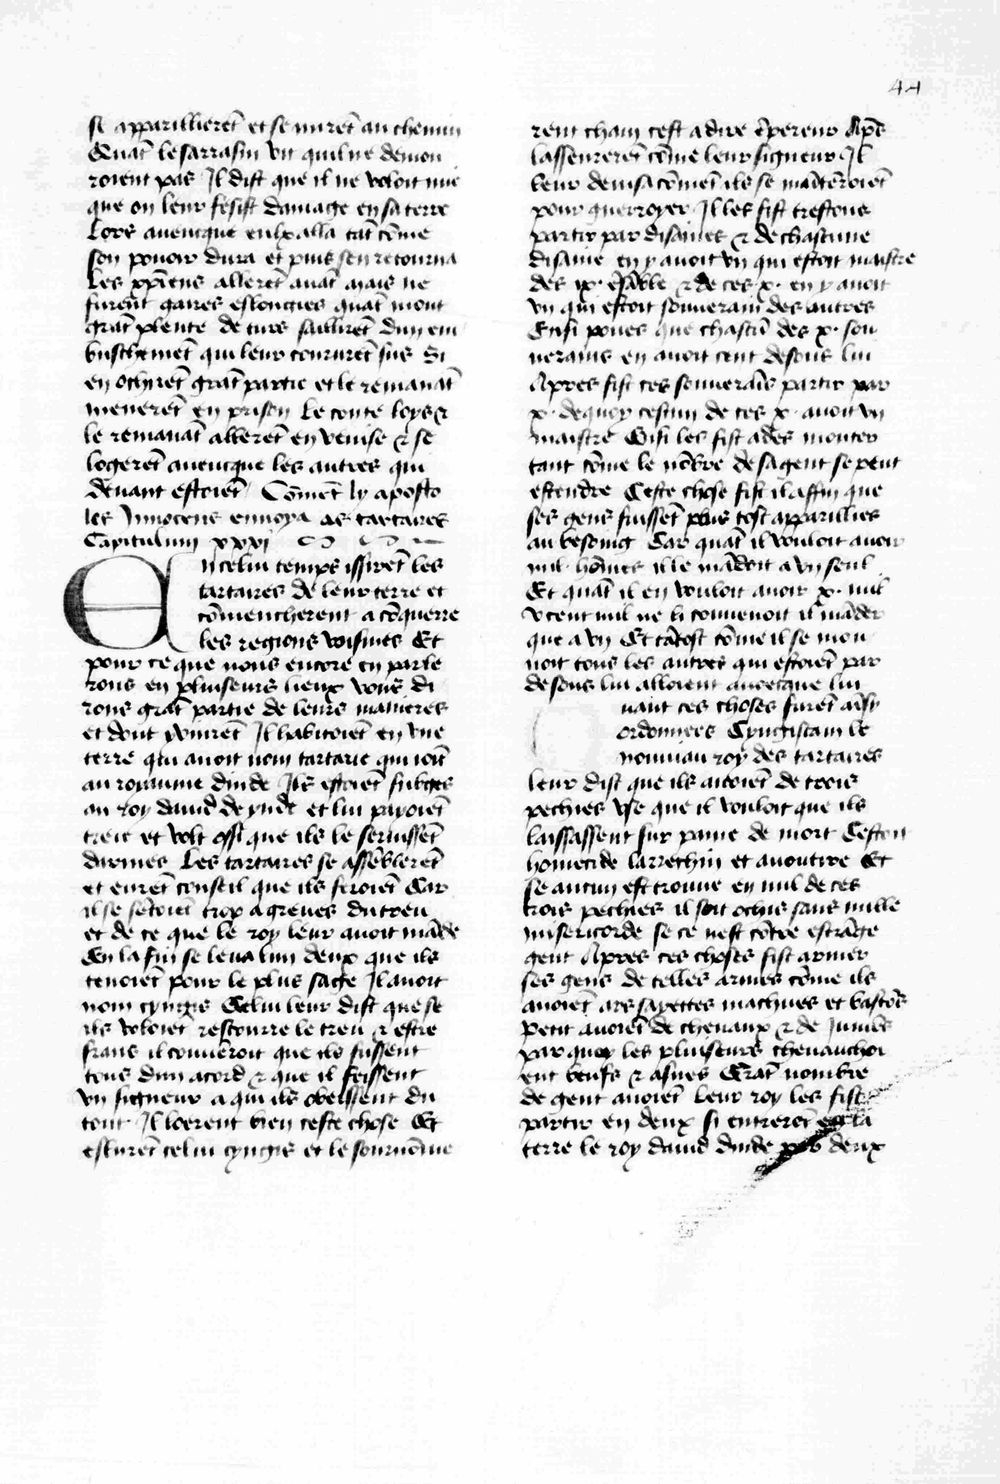 44
se apparillierēt et se mirēt au chemin
Quāt le sarrasin vit quil ne demou
roient pas Il dist que il ne voloit mie
que on leur fesist damage en sa terre
Lors auencque eulx alla tāt cōme
son pouoir dura et puis sen retourna
Les xp̄iens allerēt auāt Mais ne
furent gaires eslongies quāt mout
grāt plente de turs saillirēt dun em
buschemēt qui leur coururēt sus Si
en ochirēt grāt partie et le remanāt
menerēt en prison Le conte loys &
le remanāt allerēt en venise & se
logerēt auencque les autres qui
deuant estoiēt Cōmēt ly aposto
les Innocens enuoya as tartares
Capitulum xxxi
En celui temps issirēt les
tartaires de leur terre et
cōmencherent a cōquerre
les regions voisines Et
pour ce que nous encore en parle
rons en pluiseurs lieux vous di
rons grāt partie de leurs manieres
et dont vinrēt Il habitoiēt en vne
terre qui auoit nom tartarie qui ioīt
au royaume dinde Ils estoiēt subges
au roy dauid de ynde et lui paioiēt
treu et volt ossi que ils le seruissēt
darmes Les tartaires se assēblerēt
et eurēt conseil que ils feroiēt Car
il se sētoiēt trop agreues du treu
et de ce que le roy leur auoit māde
En la fin se leua lun deux que ils
tenoiēt pour le plus sage Il auoit
nom cyngis Celui leur dist que se
ils voloiēt rescourre le treu & estre
frans il conuēroit que ils fussent
tous dun acord & que il feissent
vn signeur a qui ils obeissent du
tout Il loerent bien ceste chose Et
eslurēt celui cyngis et le sournōme
rent cham cest a dire ēpereur Apēs
lasseurerēt cōme leur signeur Il
leur deuisa cōmēt ils se māterroiēt
pour guerroyer Il les fist trestous
partir par disaines & de chascune
disaine en y auoit vn qui estoit maistre
des ix ensāble & de ces x en y auoit
vn qui estoit souuerain des autres
Et isi poues que chascū des x sou
uerains en auoit cent desous lui
Apres fist ces souuerais partir par
x de quoy cescun de ces x auoit vn
maistre Ensi les fist ades monter
tant cōme le nōbre de sa gent se peut
estendre Ceste chose fist il affin que
ses gens fuissēt plus tost apparillies
au besoing Car quāt il vouloit auoir
mil hōmes il le mādoit a vn seul
Et quāt il en vouloit auoir x mil
v cent mil ne li conuenoit il māder
que a vn Et tātost cōme il se mou
uoit tous les autres qui estoiēt par
desous lui alloient auecque lui
uant ces choses furēt aīsy
ordonnees Cyngiscam le
nouuiau roy des tartaires
leur dist que ils aitoiēt de trois
pechies vse que il vouloit que ils
laissassent sur paine de mort Cestoit
homecide larrechin et auoutire Et
se aucun est trouue en nul de ces
trois pechies il soit ochis sans nulle
misericorde se ce nest cōtre estrāge
gent Apres ces choses fist armer
ses gens de telles armes cōme ils
auoiēt ars sayettes machues et bastōs
Petit auoiēt de cheuaux & de Jumēs
par quoy les pluiseurs cheuauchoi
ent buefs & asnes Grāt nombre
de gent auoiēt Leur roy les fist
partir en deux si entrerēt en la
terre le roy dauid dinde par deux